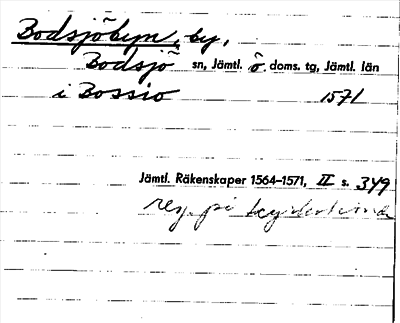 Bodsjöbyn, by,
Bodsjö sn, Jämtl. ö. doms. tg, Jämtl. län
i Bossio 1571
Jämtl. Räkenskaper 1564–1571, II s. 349
reg. på